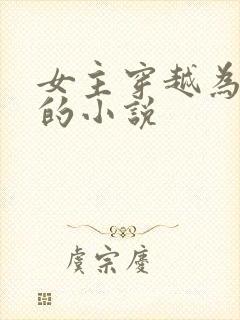 女主穿越為
的小說
虞宗慶